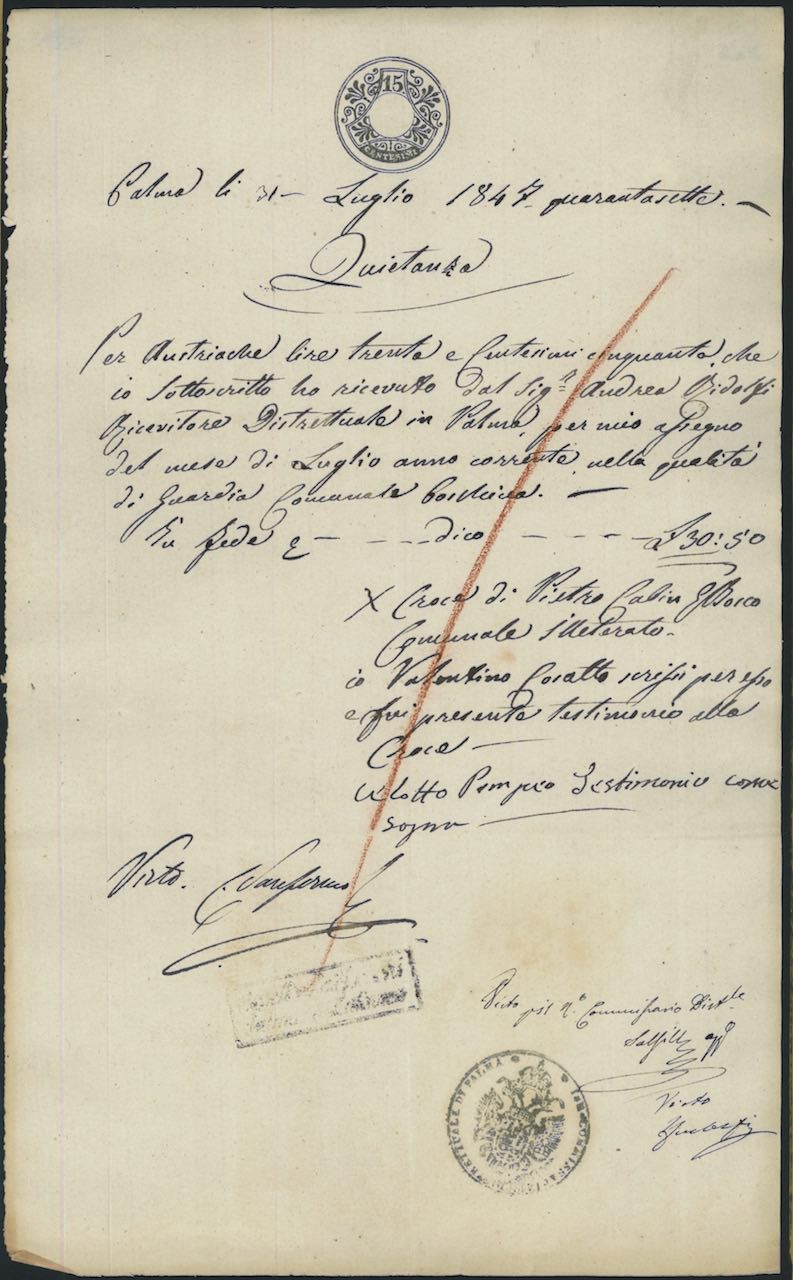 15
CENTESIMI
Palma li 31 – Luglio 1847 quarantasette. –
Quietanza
Per Austriache lire trenta e Centesimi cinquanta, che
io sottoscritto ho ricevuto dal Sig.r Andrea Ridolfi
Ricevitore Distrettuale in Palma, per mio assegno
del mese di Luglio anno corrente, nella qualità
di Guardia Comunale boschiva. –
In fede e – – – – dico – – – – – £ 30:50
X Croce di Pietro Calin G Bosco
Comunale illeterato –
io Valentino Cosatto scrissi per esso
e fui presente testimonio alla
Croce –
Pompeo Testimonio come
sopra
Visto.
Visto pel Commissario Distle
Visto
DISTRETTUALE DI PALMA I.R. COMMISSARIATO